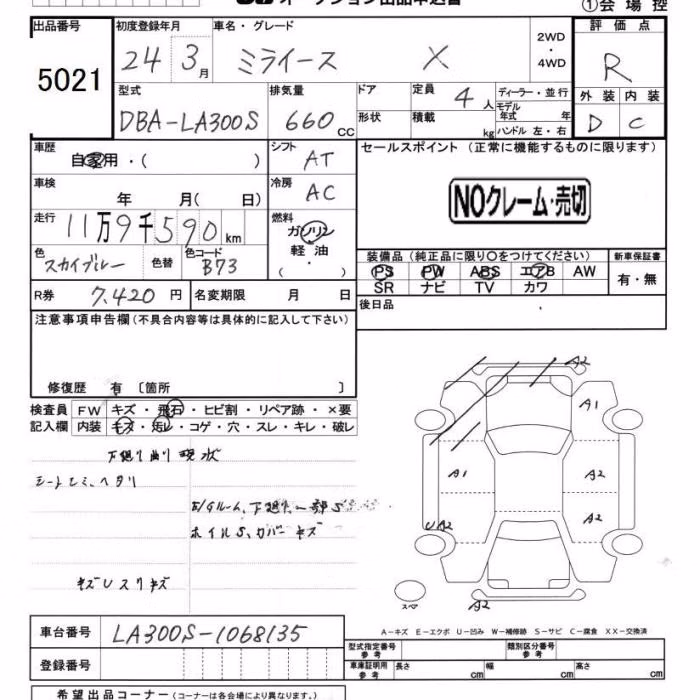 オークション出品申込書
①会場控
出品番号 5021
初度登録年月 24 3月
車名・グレード ミライース X
2WD・4WD
評価点 R
外装 D 内装 C
型式 DBA-LA300S
排気量 660cc
ドア 形状
定員 4人
積載 kg
ディーラー・並行
モデル年式 年
ハンドル 左・右
車歴 自家用・( )
シフト AT
セールスポイント (正常に機能するものに限ります)
NOクレーム・売切
車検 年 月( 日)
冷房 AC
走行 11万9千590km
燃料 ガソリン 軽油・( )
色 スカイブルー 色替 色コード B73
装備品 (純正品に限り○をつけてください)
PS PW ABS エアB AW
SR ナビ TV カワ
新車保証書 有・無
R券 7,420円 名変期限 月 日
後日品
注意事項申告欄 (不具合内容等は具体的に記入して下さい)
修復歴 有 〔箇所 〕
検査員記入欄
FW キズ・飛石・ヒビ割・リペア跡・×要
内装 キズ・汚レ・コゲ・穴・スレ・キレ・破レ
下廻り曲り現状
シートシミ、ヘタリ
E/Gルーム、下廻り一部S
ホイルS、カバーキズ
キズUスリキズ
A2
A1
A1 A2
UA2 A2
スペア A2
A-キズ E-エクボ U-凹み W-補修跡 S-サビ C-腐食 XX-交換済
車台番号 LA300S-1068135
登録番号
型式指定番号 参考 類別区分番号 参考
車庫証明用 参考 長さ cm 幅 cm 高さ cm
希望出品コーナー (コーナーは各会場により異なります。)